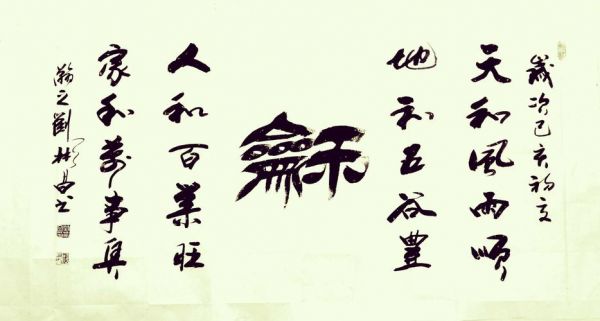 歲次己亥初夏
天和風雨順
地和五谷豐
龢
人和百業旺
家和萬事興
瀚之劉彬昌书